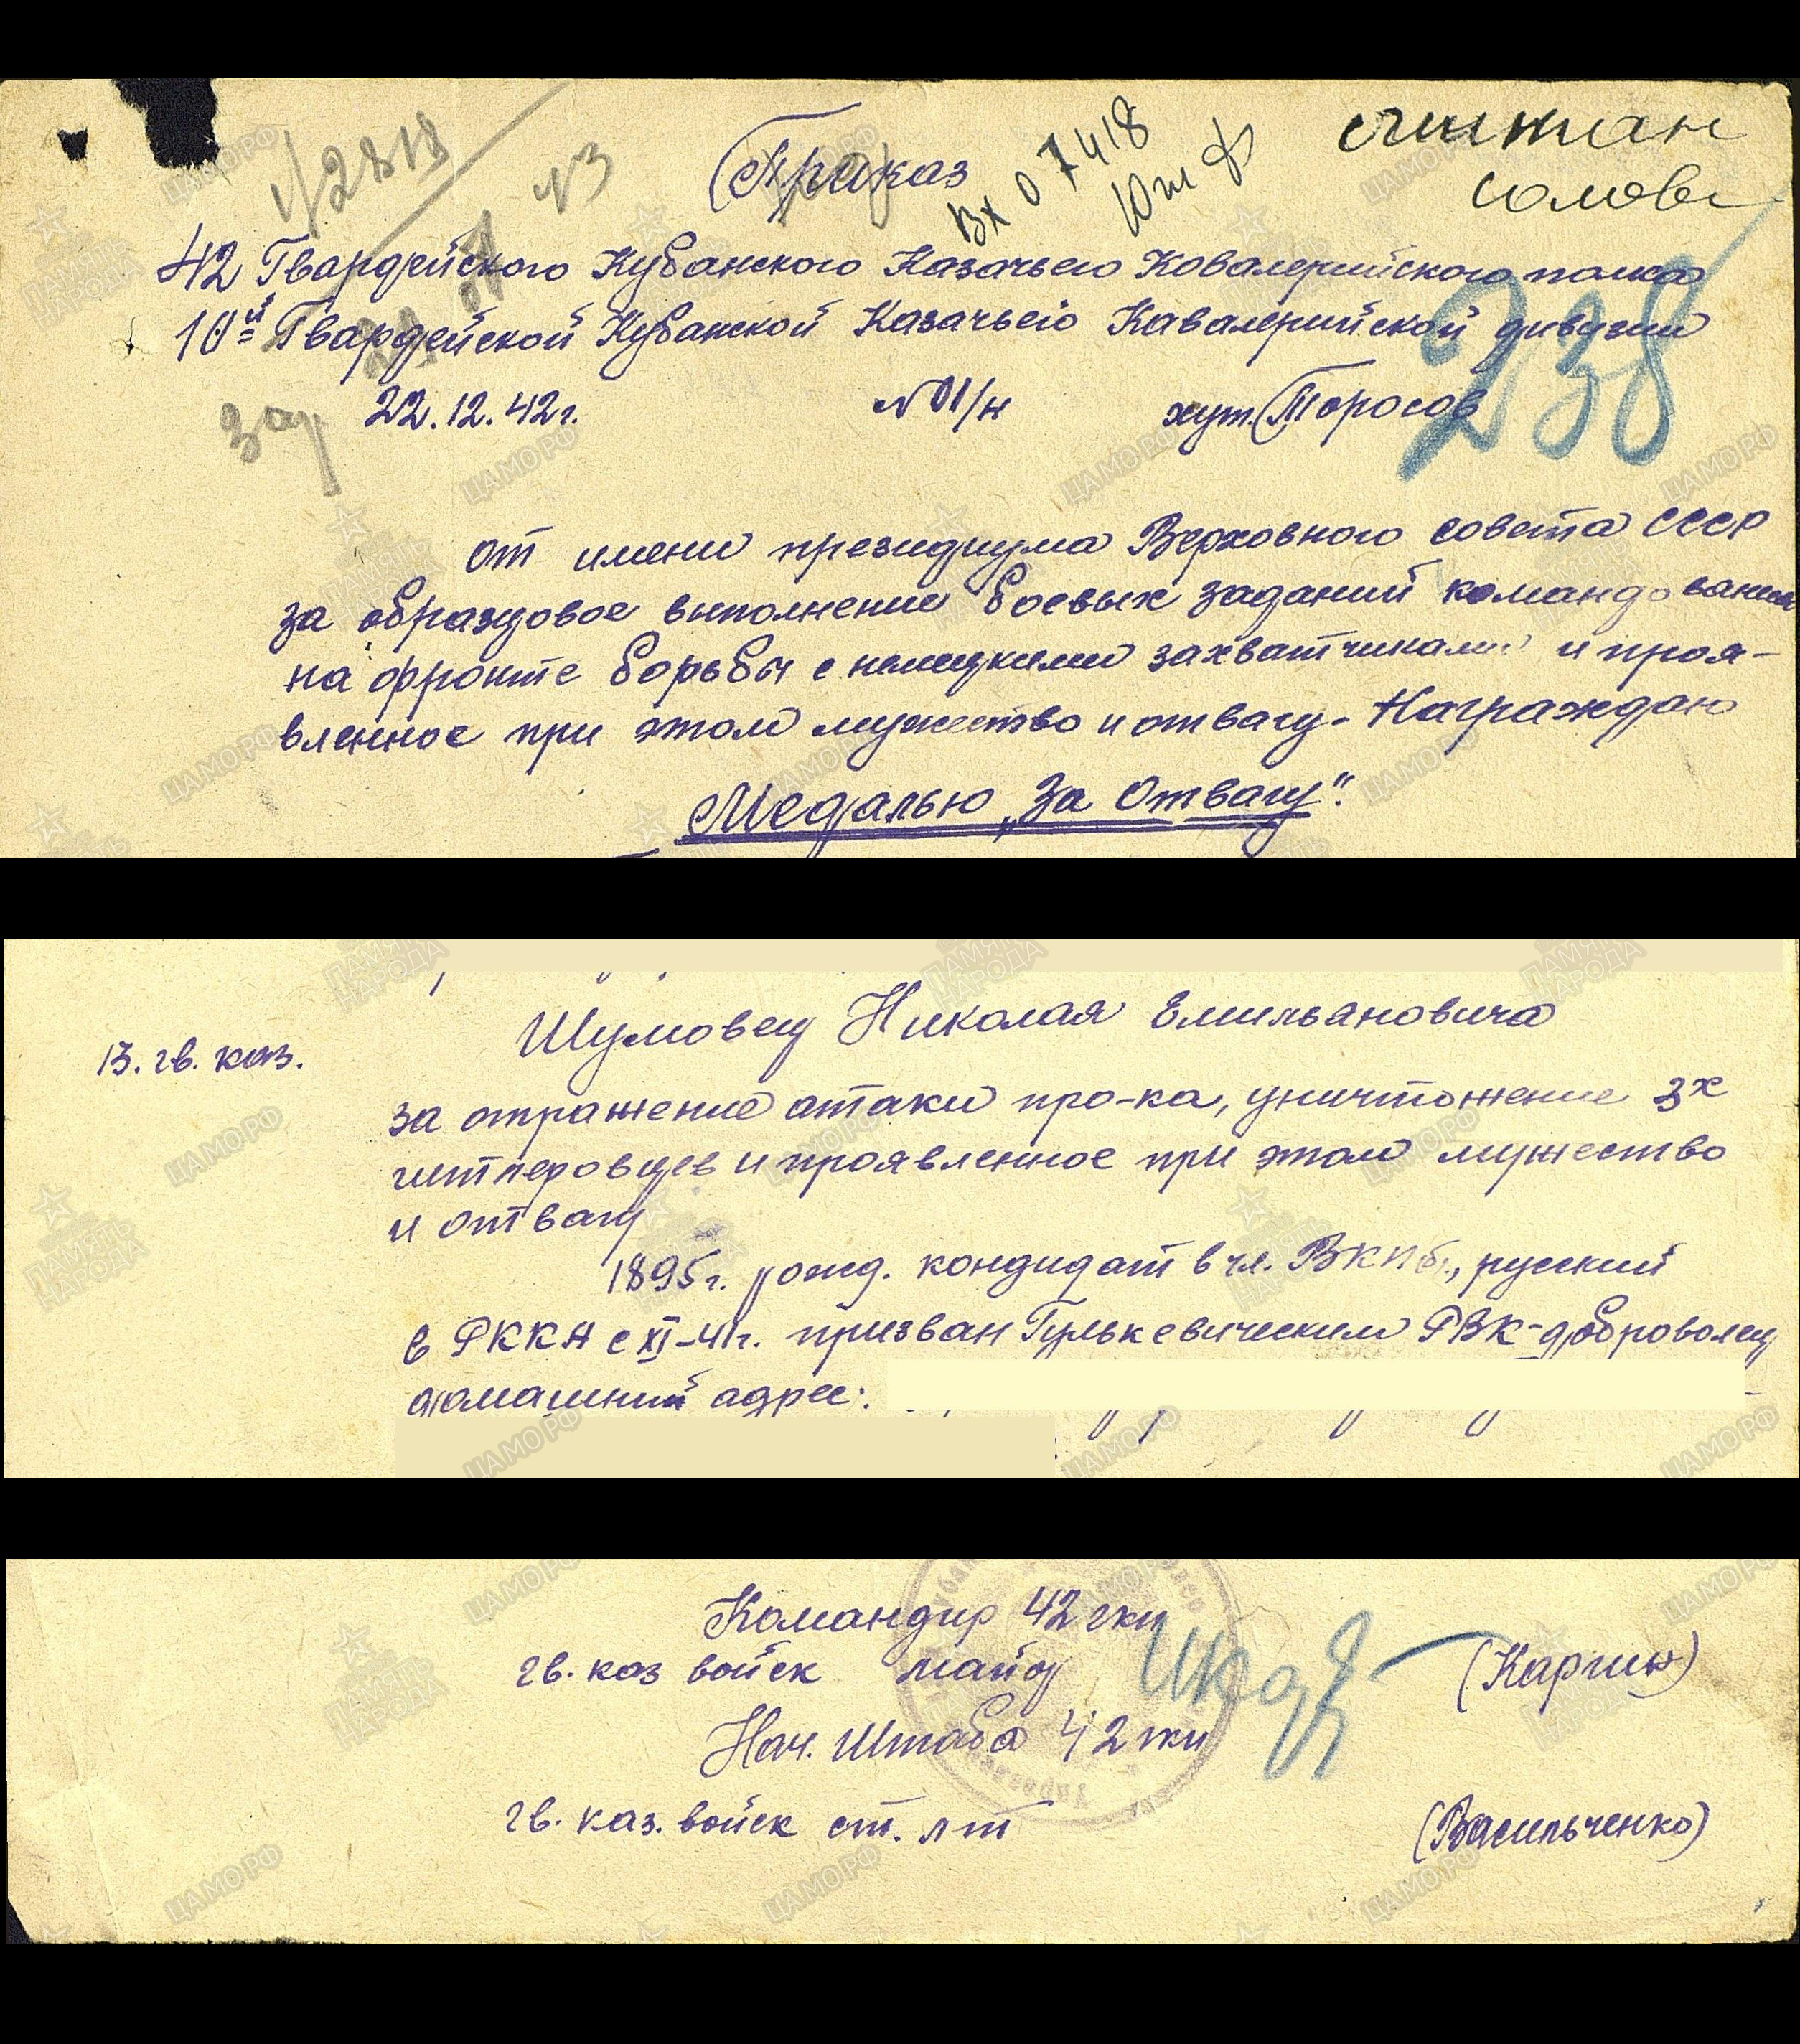 Приказ
Вх 07418
42 Гвардейского Кубанского Казачьего Ковалерийского полка
10й Гвардейской Кубанской Казачьей Кавалерийской дивизии
22.12.42г. №01/н хут. Торосов
238
от имени президиума Верховного совета СССР
за образцовое выполнение боевых заданий командования
на фронте борьбы с немецкими захватчиками и проя-
вленное при этом мужество и отвагу - Награждаю
Медалью „За Отвагу".
13. гв. каз. Шумовец Николая Емильановича
за отражение атаки про-ка, уничтожение 3х
гитлеровцев и проявленное при этом мужество
и отвагу
1895г. рожд. кондидат в чл. ВКПб., русский
в РККА с XI-41г. призван Гулькевическим РВК-доброволец
домашний адрес:
Командир 42 гкп
гв. каз войск майор (Каргин)
Нач. Штаба 42 гкп
гв. каз. войск ст. л-т (Васильченко)